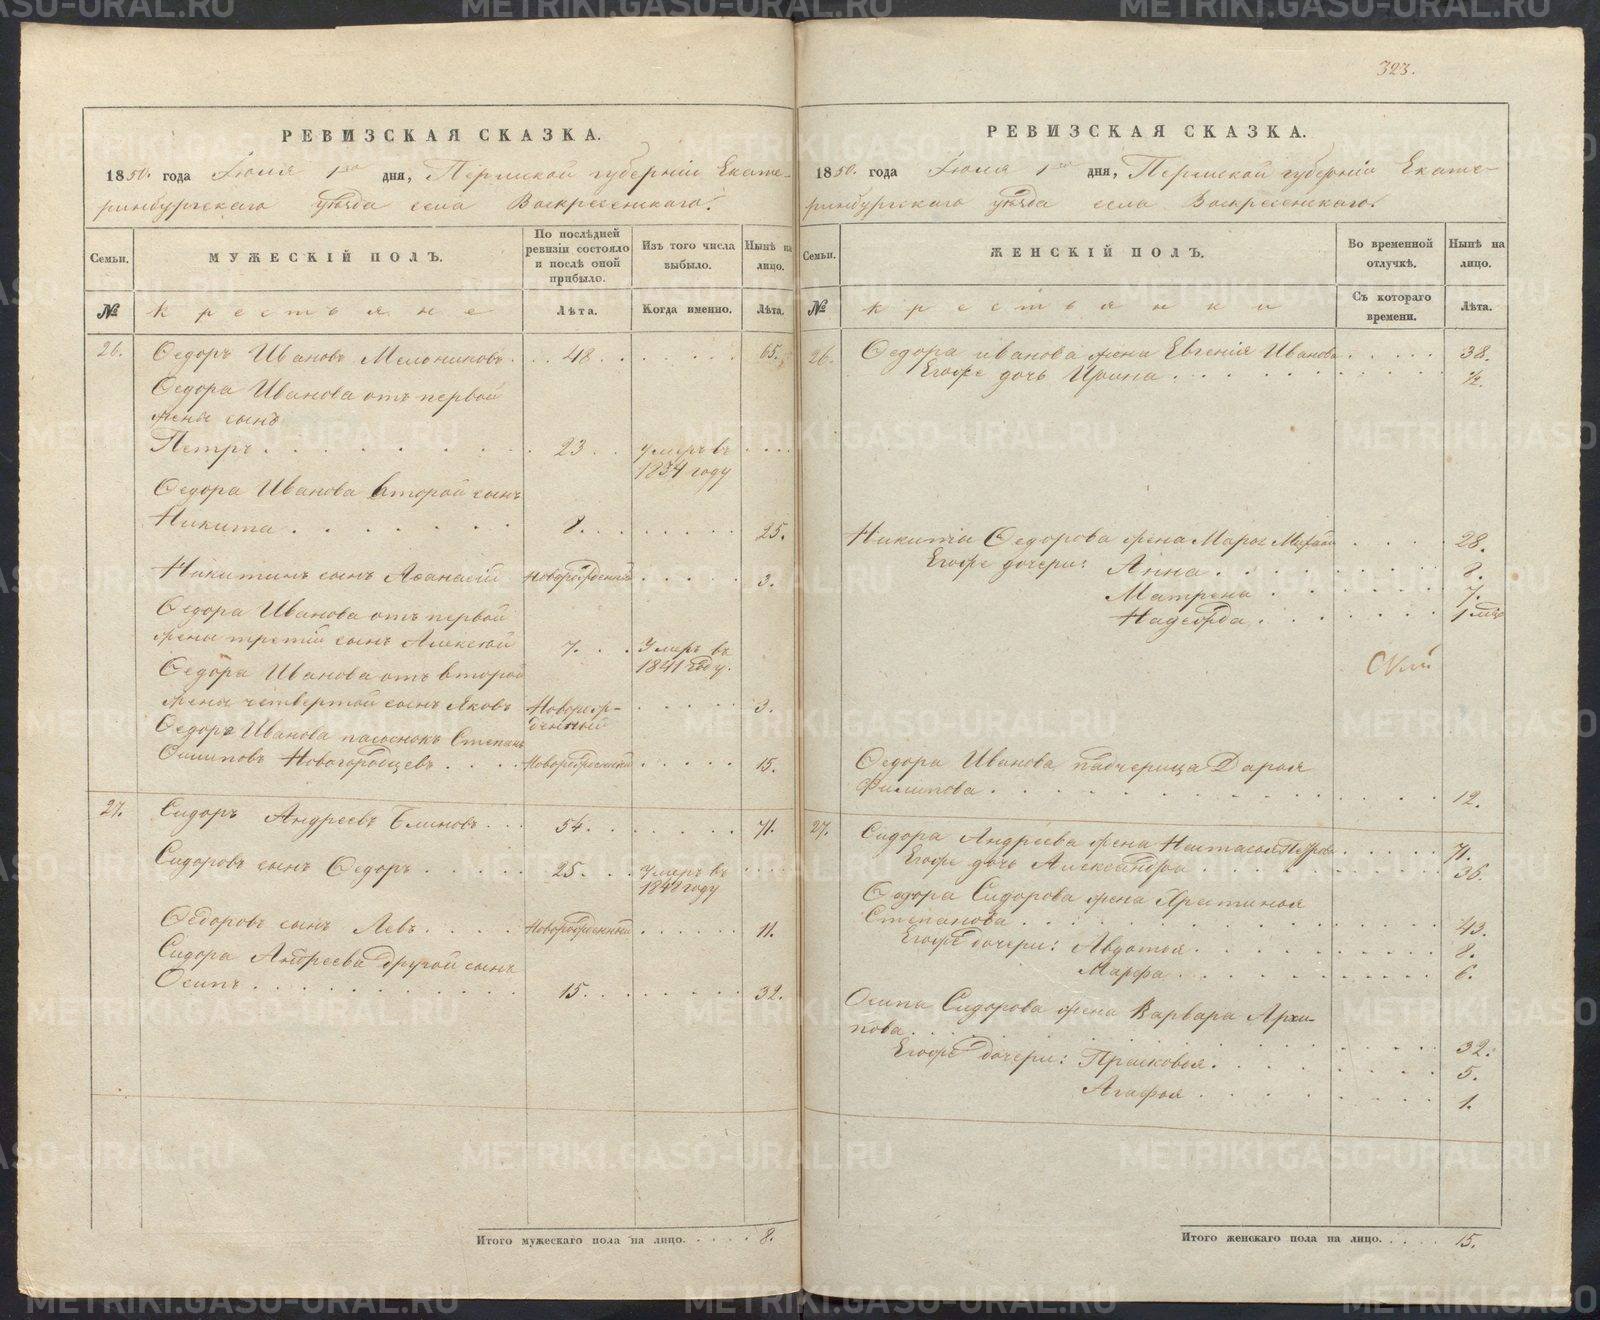 323.
РЕВИЗСКАЯ СКАЗКА.
1850. года Іюля 1го дня, Пермской губерніи Екате-
ринбургскаго уѣзда села Воскресенскаго.
Семьи.
МУЖЕСКІЙ ПОЛЪ.
По послѣдней ревизіи состояло и послѣ оной прибыло.
Изъ того числа выбыло.
Нынѣ на лицо.
№
крестьяне
Лѣта.
Когда именно.
Лѣта.
26. Ѳедоръ Ивановъ Мельниковъ. 48. 65.
Ѳедора Иванова отъ первой
жены сынъ
Петръ. 23. умеръ въ
1834 году
Ѳедора Иванова второй сынъ
Никита 8. 25.
Никитинъ сынъ Аѳанасій Новорожденный 3.
Ѳедора Иванова отъ первой
жены третій сынъ Алексѣй 7. Умеръ въ
1841 году.
Ѳедора Иванова отъ второй
жены четвертой сынъ Яковъ Новорож-
денный 3.
Ѳедора Иванова пасынокъ Степанъ
Филиповъ Новогородцевъ Новорожденный 15.
27. Сидоръ Андреевъ Блиновъ 54. 71.
Сидоровъ сынъ Ѳедоръ 25. Умеръ въ
1848 году
Ѳедоровъ сынъ Левъ Новорожденный 11.
Сидора Андреева другой сынъ
Осипъ 15. 32.
Итого мужескаго пола на лицо. 8.
РЕВИЗСКАЯ СКАЗКА.
1850. года Іюля 1го дня, Пермской губерніи Екате-
ринбургскаго уѣзда села Воскресенскаго.
Семьи.
ЖЕНСКІЙ ПОЛЪ.
Во временной отлучкѣ.
Нынѣ на лицо.
№
крестьянки
Съ котораго времени.
Лѣта.
26. Ѳедора Иванова жена Евгенія Иванова 38.
Егоже дочь Ирина ½.
Никиты Ѳедорова жена Марья 28.
Егоже дочери: Анна 8.
Матрена 7.
Надежда 1
Ѳедора Иванова падчерица Дарья
Филипова 12.
27. Сидора Андреева жена Настасья Петрова 71.
Егоже дочь Александра 36.
Ѳедора Сидорова жена Христинья
Степанова 43.
Егоже дочери: Авдотья 8.
Марфа 6.
Осипа Сидорова жена Варвара Архи-
пова 32.
Егоже дочери: Прасковья 5.
Агафья 1.
Итого женскаго пола на лицо. 15.
METRIKI.GASO-URAL.RU